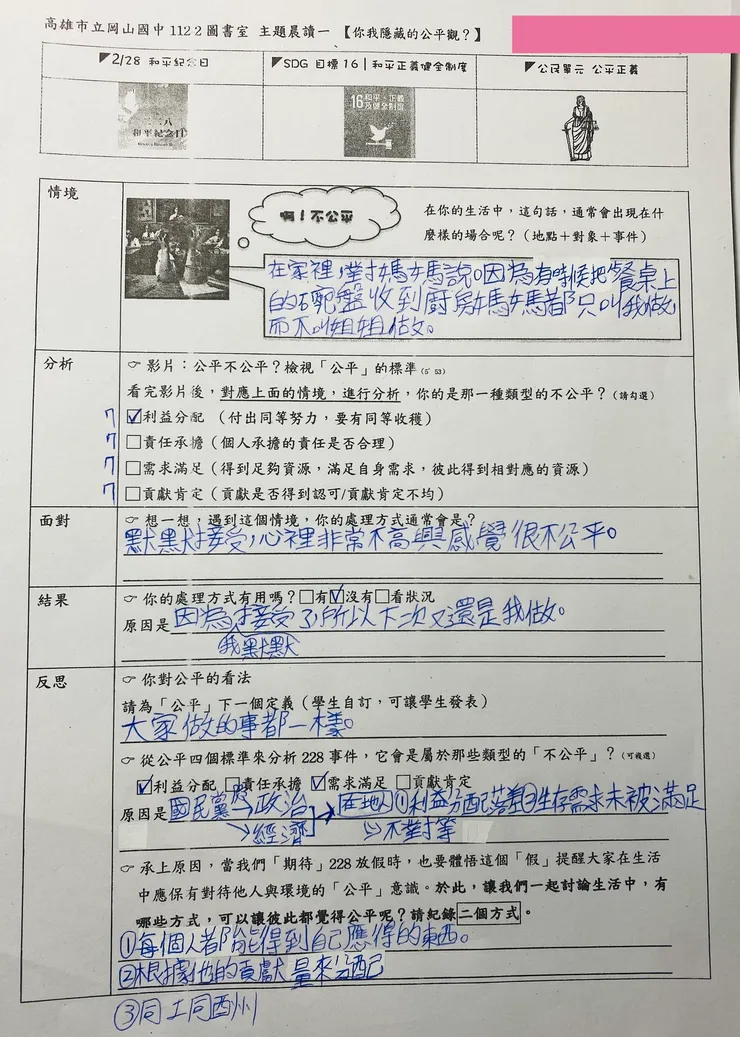 高雄市立岡山國中 112 2 圖書室 主題晨讀一 【你我隱藏的公平觀？】
◤2/28 和平紀念日
◤SDG 目標 16｜和平正義健全制度
◤公民單元 公平正義
二二八
和平紀念日
16 和平、正義
及健全制度
情境
啊！不公平
在你的生活中，這句話，通常會出現在什
麼樣的場合呢？（地點＋對象＋事件）
在家裡，對媽媽說。因為有時候把餐桌上
的碗盤收到廚房媽媽都只叫我做
而不叫姐姐做。
分析
☞ 影片：公平不公平？檢視「公平」的標準（5' 53）
看完影片後，對應上面的情境，進行分析，你的是那一種類型的不公平？（請勾選）
☑利益分配 （付出同等努力，要有同等收穫）
□責任承擔（個人承擔的責任是否合理）
□需求滿足（得到足夠資源，滿足自身需求，彼此得到相對應的資源）
□貢獻肯定（貢獻是否得到認可/貢獻肯定不均）
面對
☞ 想一想，遇到這個情境，你的處理方式通常會是？
默默接受，心裡非常不高興感覺很不公平。
結果
☞ 你的處理方式有用嗎？□有☑沒有□看狀況
原因是因為接受了，所以下次又還是我做。
我默默
反思
☞ 你對公平的看法
請為「公平」下一個定義（學生自訂，可讓學生發表）
大家做的事都一樣。
☞ 從公平四個標準來分析 228 事件，它會是屬於那些類型的「不公平」？（可複選）
☑利益分配 □責任承擔 ☑需求滿足 □貢獻肯定
原因是國民黨→政治 在地人①利益分配落差③生存需求未被滿足
→經濟 ⇒不對等
☞ 承上原因，當我們「期待」228 放假時，也要體悟這個「假」提醒大家在生活
中應保有對待他人與環境的「公平」意識。於此，讓我們一起討論生活中，有
哪些方式，可以讓彼此都覺得公平呢？請紀錄二個方式。
①每個人都能得到自己應得的東西。
②根據他的貢獻量來分配
③同工同酬